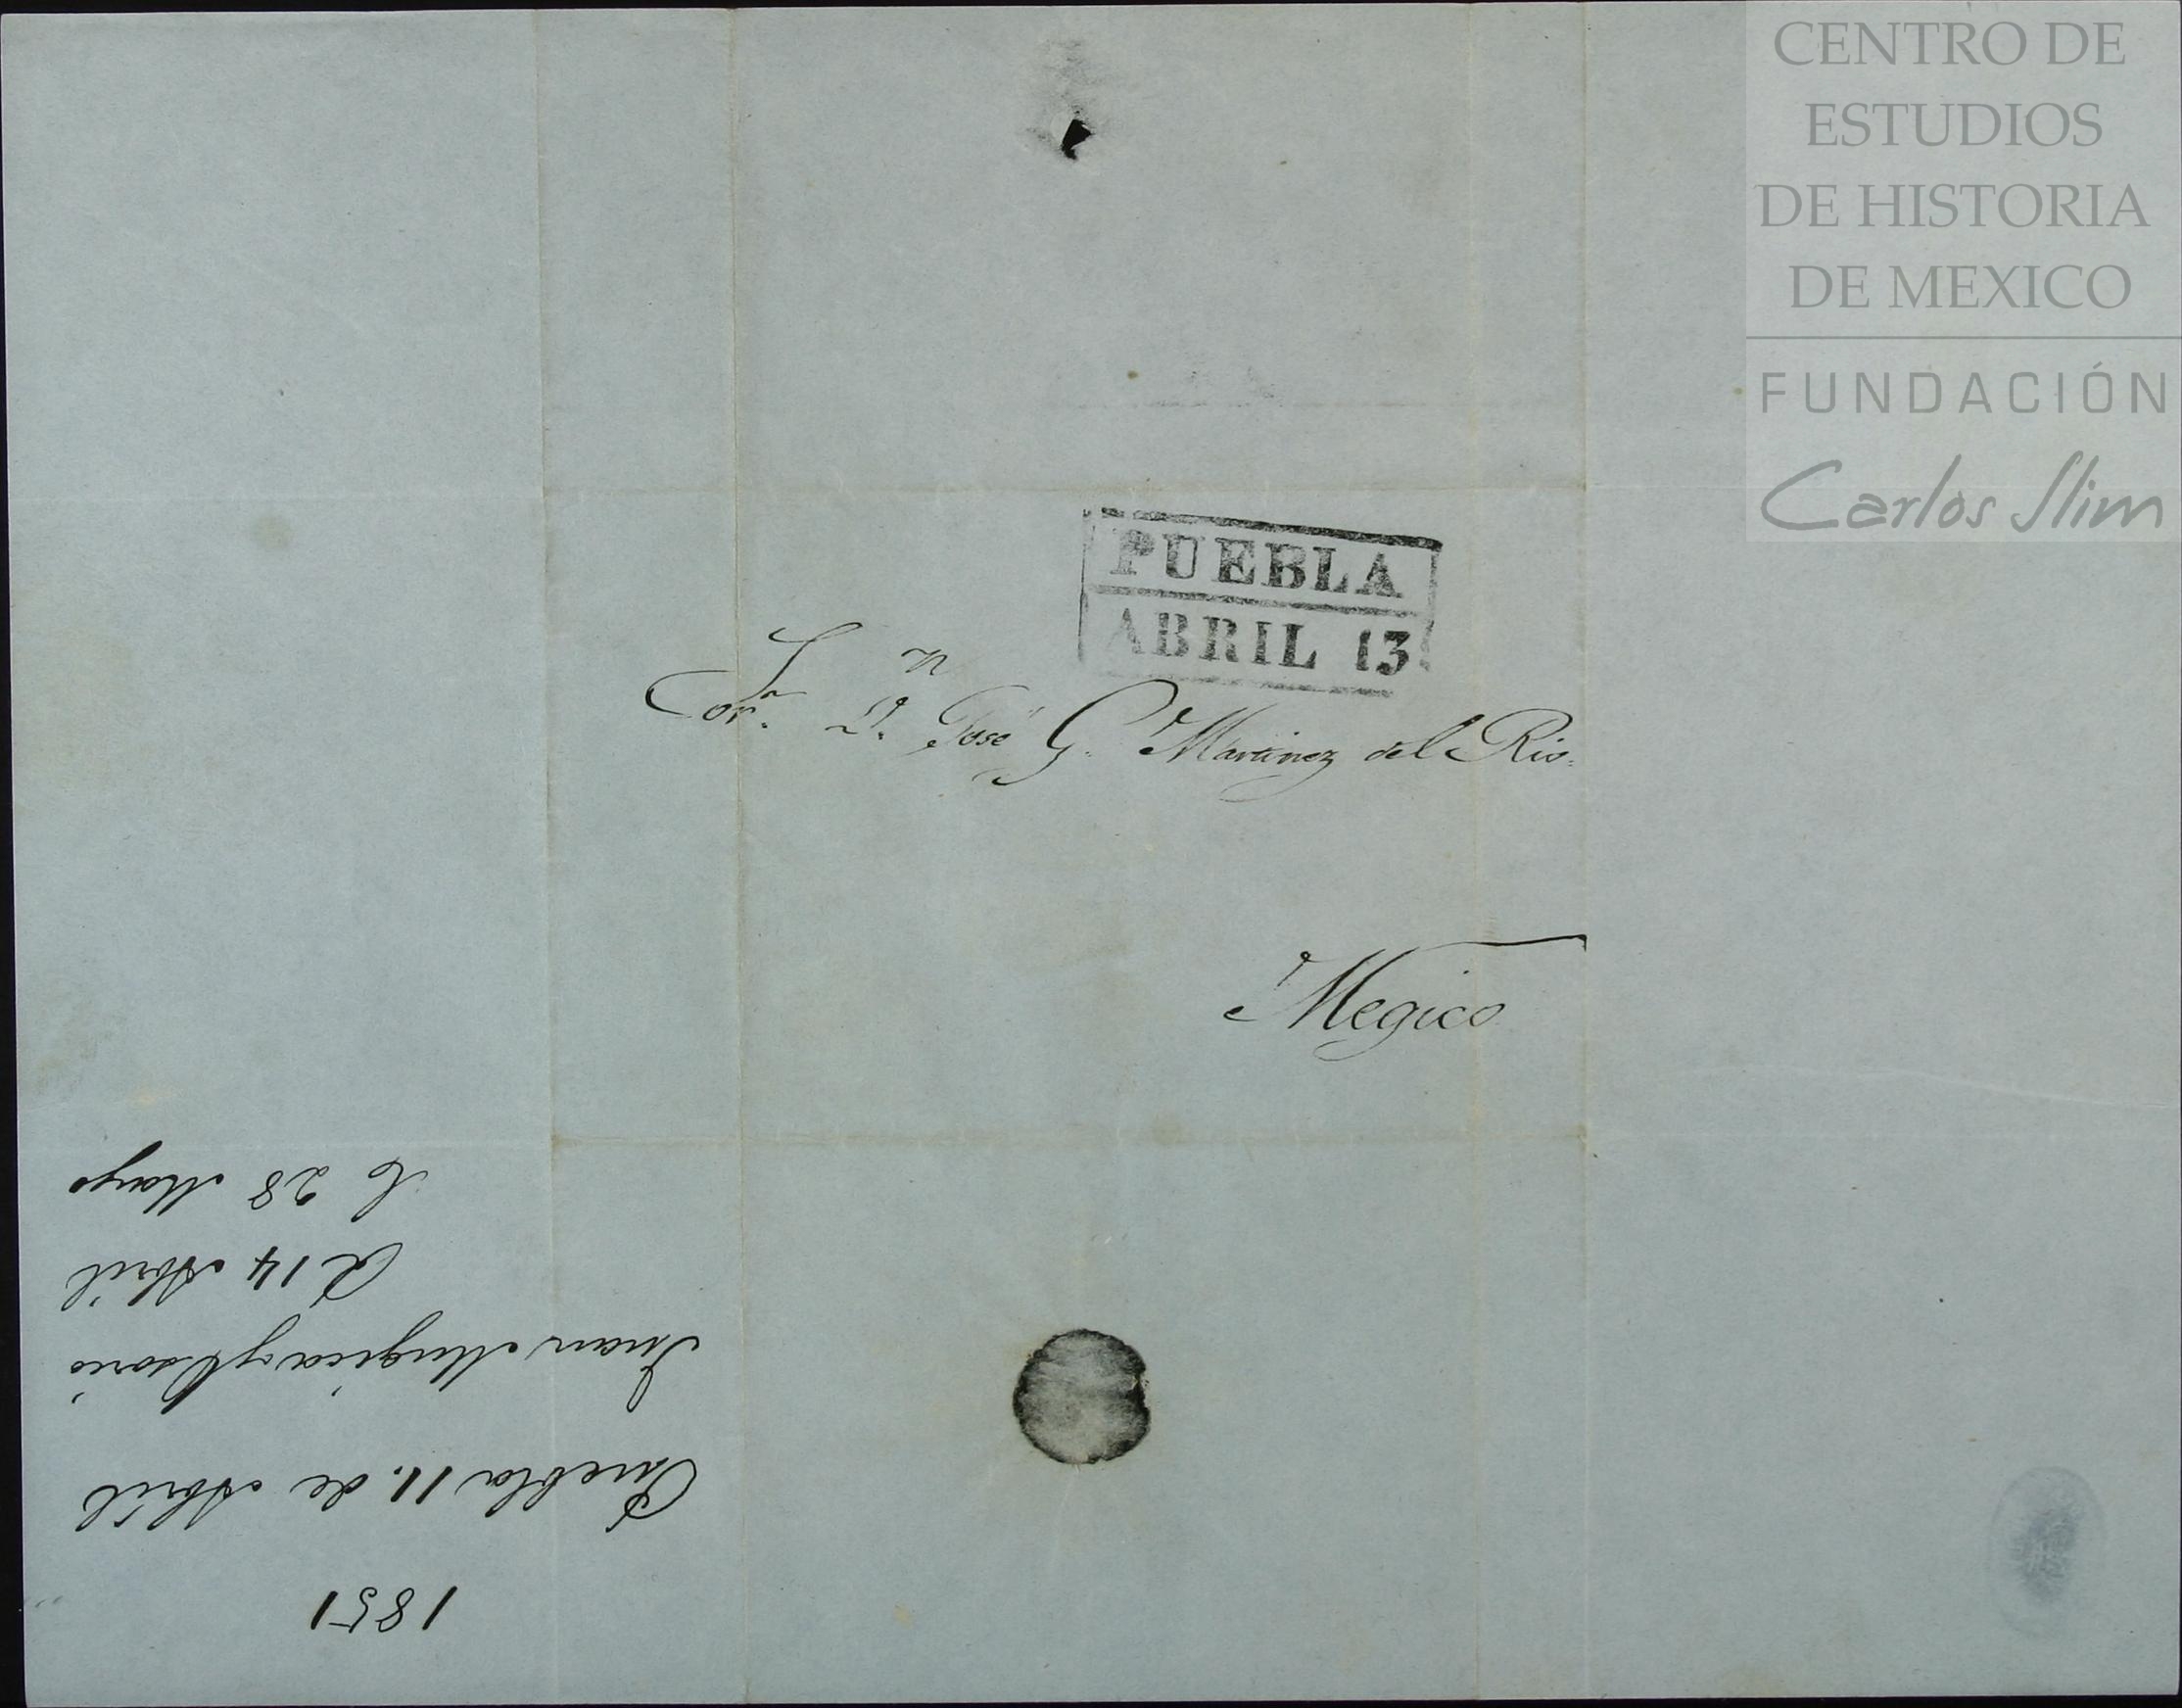 CENTRO DE
ESTUDIOS
DE HISTORIA
DE MEXICO
FUNDACIÓN
Carlos Slim
PUEBLA
ABRIL 13
Sor. Dn. José G. Martinez del Rio.
Megico
1851
Puebla 11. de Abril
Juan Mugica y Osorio
R 14 Abril
C 28 Mayo